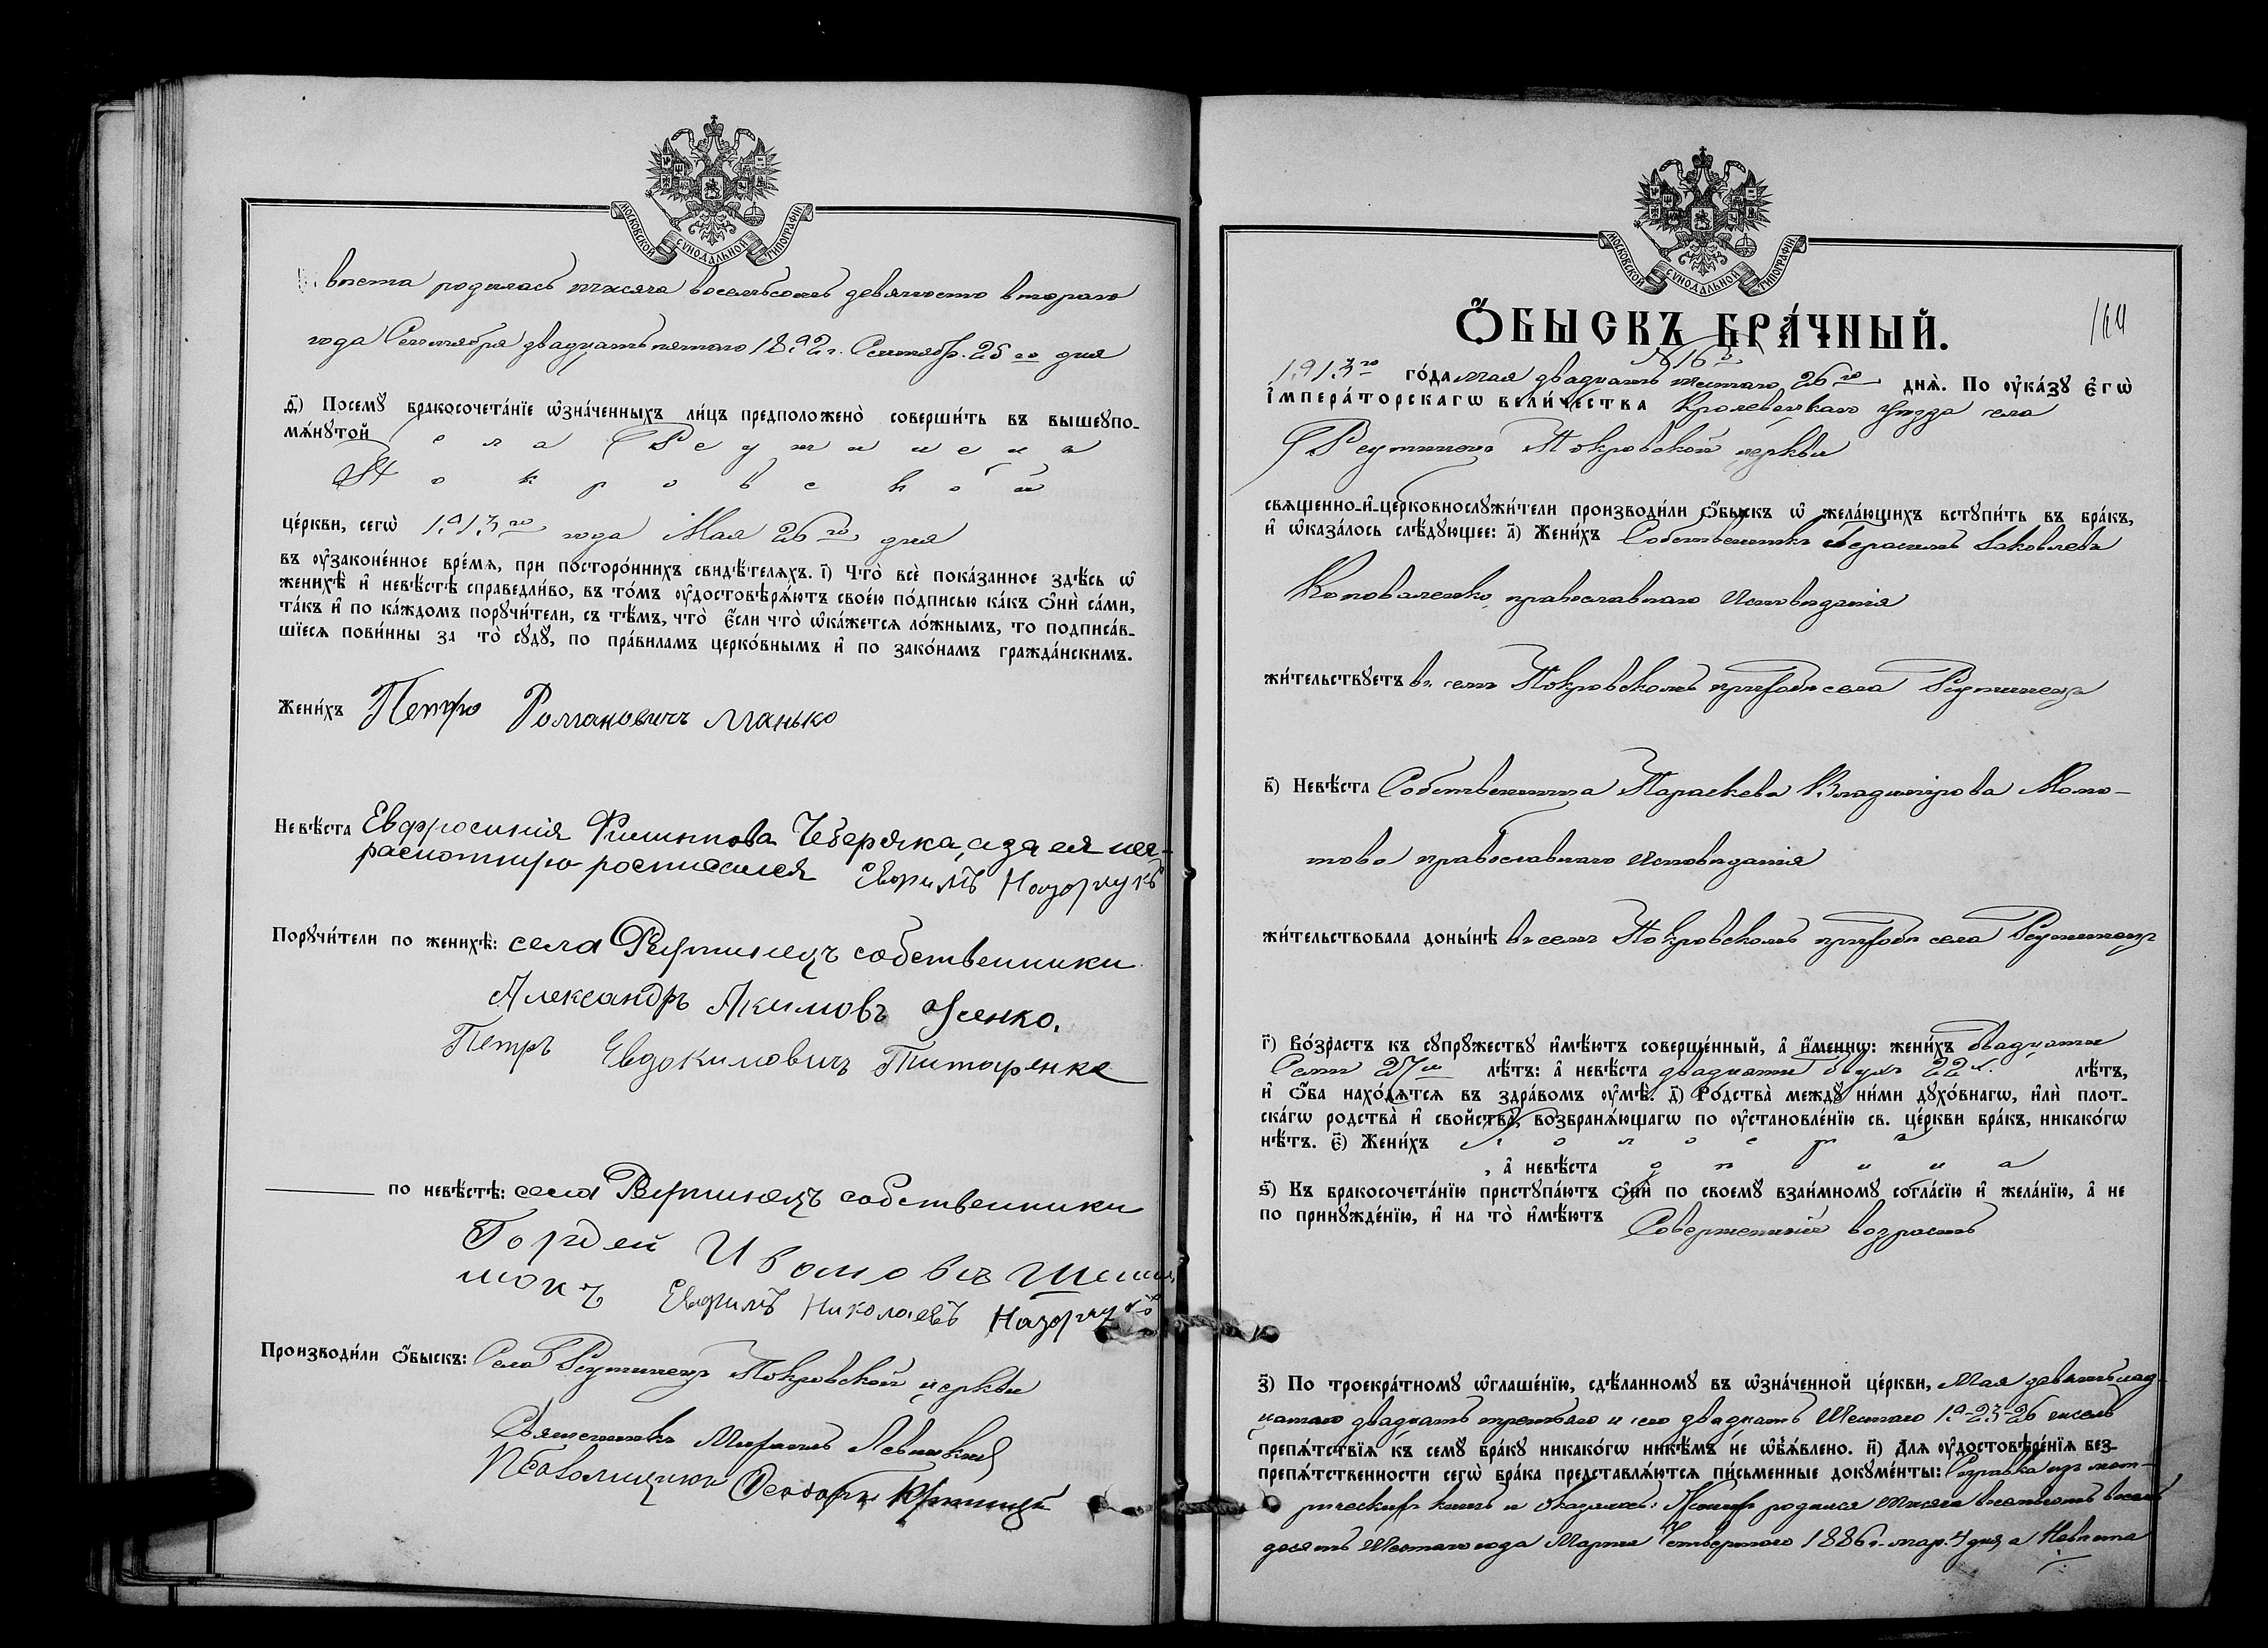 МОСКОВСКОЙ СУНОДАЛЬНОЙ ТИПОГРАФІИ
вѣста родилась тысяча восемьсотъ девяносто втораго
года Сентября двадцать пятаго 1892 г. Сентябр. 25 го дня
д҃) Посемꙋ бракосочета́нїе ѡ҆зна́ченныхъ ли́цъ предположено̀ соверши́ть въ вышеꙋпо-
мѧ́нꙋтой села Реутинецъ
Покровской
це́ркви, сегѡ̀ 1913 го года Мая 26 го дня
въ оу҆законе́нное вре́мѧ, при посторо́ннихъ свидѣ́телѧхъ. і҃) Что̀ всѐ пока́занное здѣ́сь ѡ҆
женихѣ̀ и҆ невѣ́стѣ справедли́во, въ то́мъ оу҆достовѣрѧ́ютъ свое́ю по́дписью ка́къ ѻ҆нѝ са́ми,
та́къ и҆ по ка́ждомъ порꙋчи́тели, съ тѣ́мъ, что̀ є҆́сли что̀ ѡ҆ка́жетсѧ ло́жнымъ, то подписа́в-
шїесѧ пови́нны за то̀ сꙋдꙋ̀, по пра́виламъ церко́внымъ и҆ по зако́намъ гражда́нскимъ.
Жени́хъ Петро Романовичъ Манько
Невѣ́ста Евфросинія Филипова Чеберяка, а за ея не-
расмотнрю росписался Евфимъ Назорчукъ
Порꙋчи́тели по женихѣ̀: села Реутинецъ собственники
Александръ Акимовъ Усенко.
Петръ Евдокимовичъ Титаренко
по невѣ́стѣ: села Реутинецъ собственники
Гордей Ивановъ
Евфимъ Николаевъ Назорчукъ
Производи́ли ѻ҆́быскъ: Села Реутинецъ Покровской церкви
Священникъ Михаилъ Левицкій
Псаломщикъ Феодоръ
МОСКОВСКОЙ СУНОДАЛЬНОЙ ТИПОГРАФІИ
Ѻ҆́БЫСКЪ БРА́ЧНЫЙ.
164
№ 16 й
1913 го го́да Мая двадцать шестаго 26 го днѧ̀. По оу҆ка́зꙋ є҆гѡ̀
і҆мпера́торскагѡ вели́чества Кролевецкаго уѣзда села
Реутинецъ Покровской церкви
свѧщенно-и҆-церковнослꙋжи́тели производи́ли ѻ҆́быскъ ѡ҆ жела́ющихъ встꙋпи́ть въ бра́къ,
и҆ ѡ҆каза́лось слѣ́дꙋющее: а҃) Жени́хъ Собственникъ Герасимъ Яковлевъ
Коноваленко, православнаго исповѣданія
жи́тельствꙋетъ въ селѣ Покровскомъ приходѣ села Реутинецъ
в҃) Невѣ́ста Собственница Параскева Владимірова Моло-
това православнаго исповѣданія
жи́тельствовала доны́нѣ въ селѣ Покровскомъ приходѣ села Реутинецъ
г҃) Во́зрастъ къ сꙋпрꙋ́жествꙋ и҆мѣ́ютъ соверше́нный, а҆ и҆́меннѡ: жени́хъ двадцати
Семи 27 и лѣ́тъ: а҆ невѣ́ста двадцати двухъ 22 х лѣ́тъ,
и҆ ѻ҆́ба нахо́дѧтсѧ въ здра́вомъ оу҆мѣ̀. д҃) Ро́дства междꙋ̀ ни́ми дꙋхо́внагѡ, и҆лѝ плот-
ска́гѡ родства̀ и҆ свойства̀, возбранѧ́ющагѡ по оу҆становле́нїю св. це́ркви бра́къ, никако́гѡ
нѣ́тъ. є҃) Жени́хъ холостъ
, а҆ невѣ́ста дѣвица
ѕ҃) Къ бракосочета́нїю пристꙋпа́ютъ ѻ҆нѝ по своемꙋ̀ взаи́мномꙋ согла́сїю и҆ жела́нїю, а҆ не
по принꙋжде́нїю, и҆ на то̀ и҆мѣ́ютъ Совершенный возрастъ
з҃) По троекра́тномꙋ ѡ҆глаше́нїю, сдѣ́ланномꙋ въ ѡ҆зна́ченной це́ркви, Мая девятнад-
цатаго двадцать третьяго и сего двадцать Шестаго 19-23-26 чиселъ
препѧ́тствїѧ къ семꙋ̀ бра́кꙋ никако́гѡ никѣ́мъ не ѡ҆б̾ѧ́влено. и҃) Длѧ оу҆достовѣре́нїѧ без-
препѧ́тственности сегѡ̀ бра́ка представлѧ́ютсѧ пи́сьменные докꙋме́нты: Справка изъ мет-
рическихъ книгъ и оказалось: Женихъ родился тысяча восемьсотъ восемь
десятъ Шестаго года Марта Четвертаго 1886 г. мар. 4 дня, а Невѣста